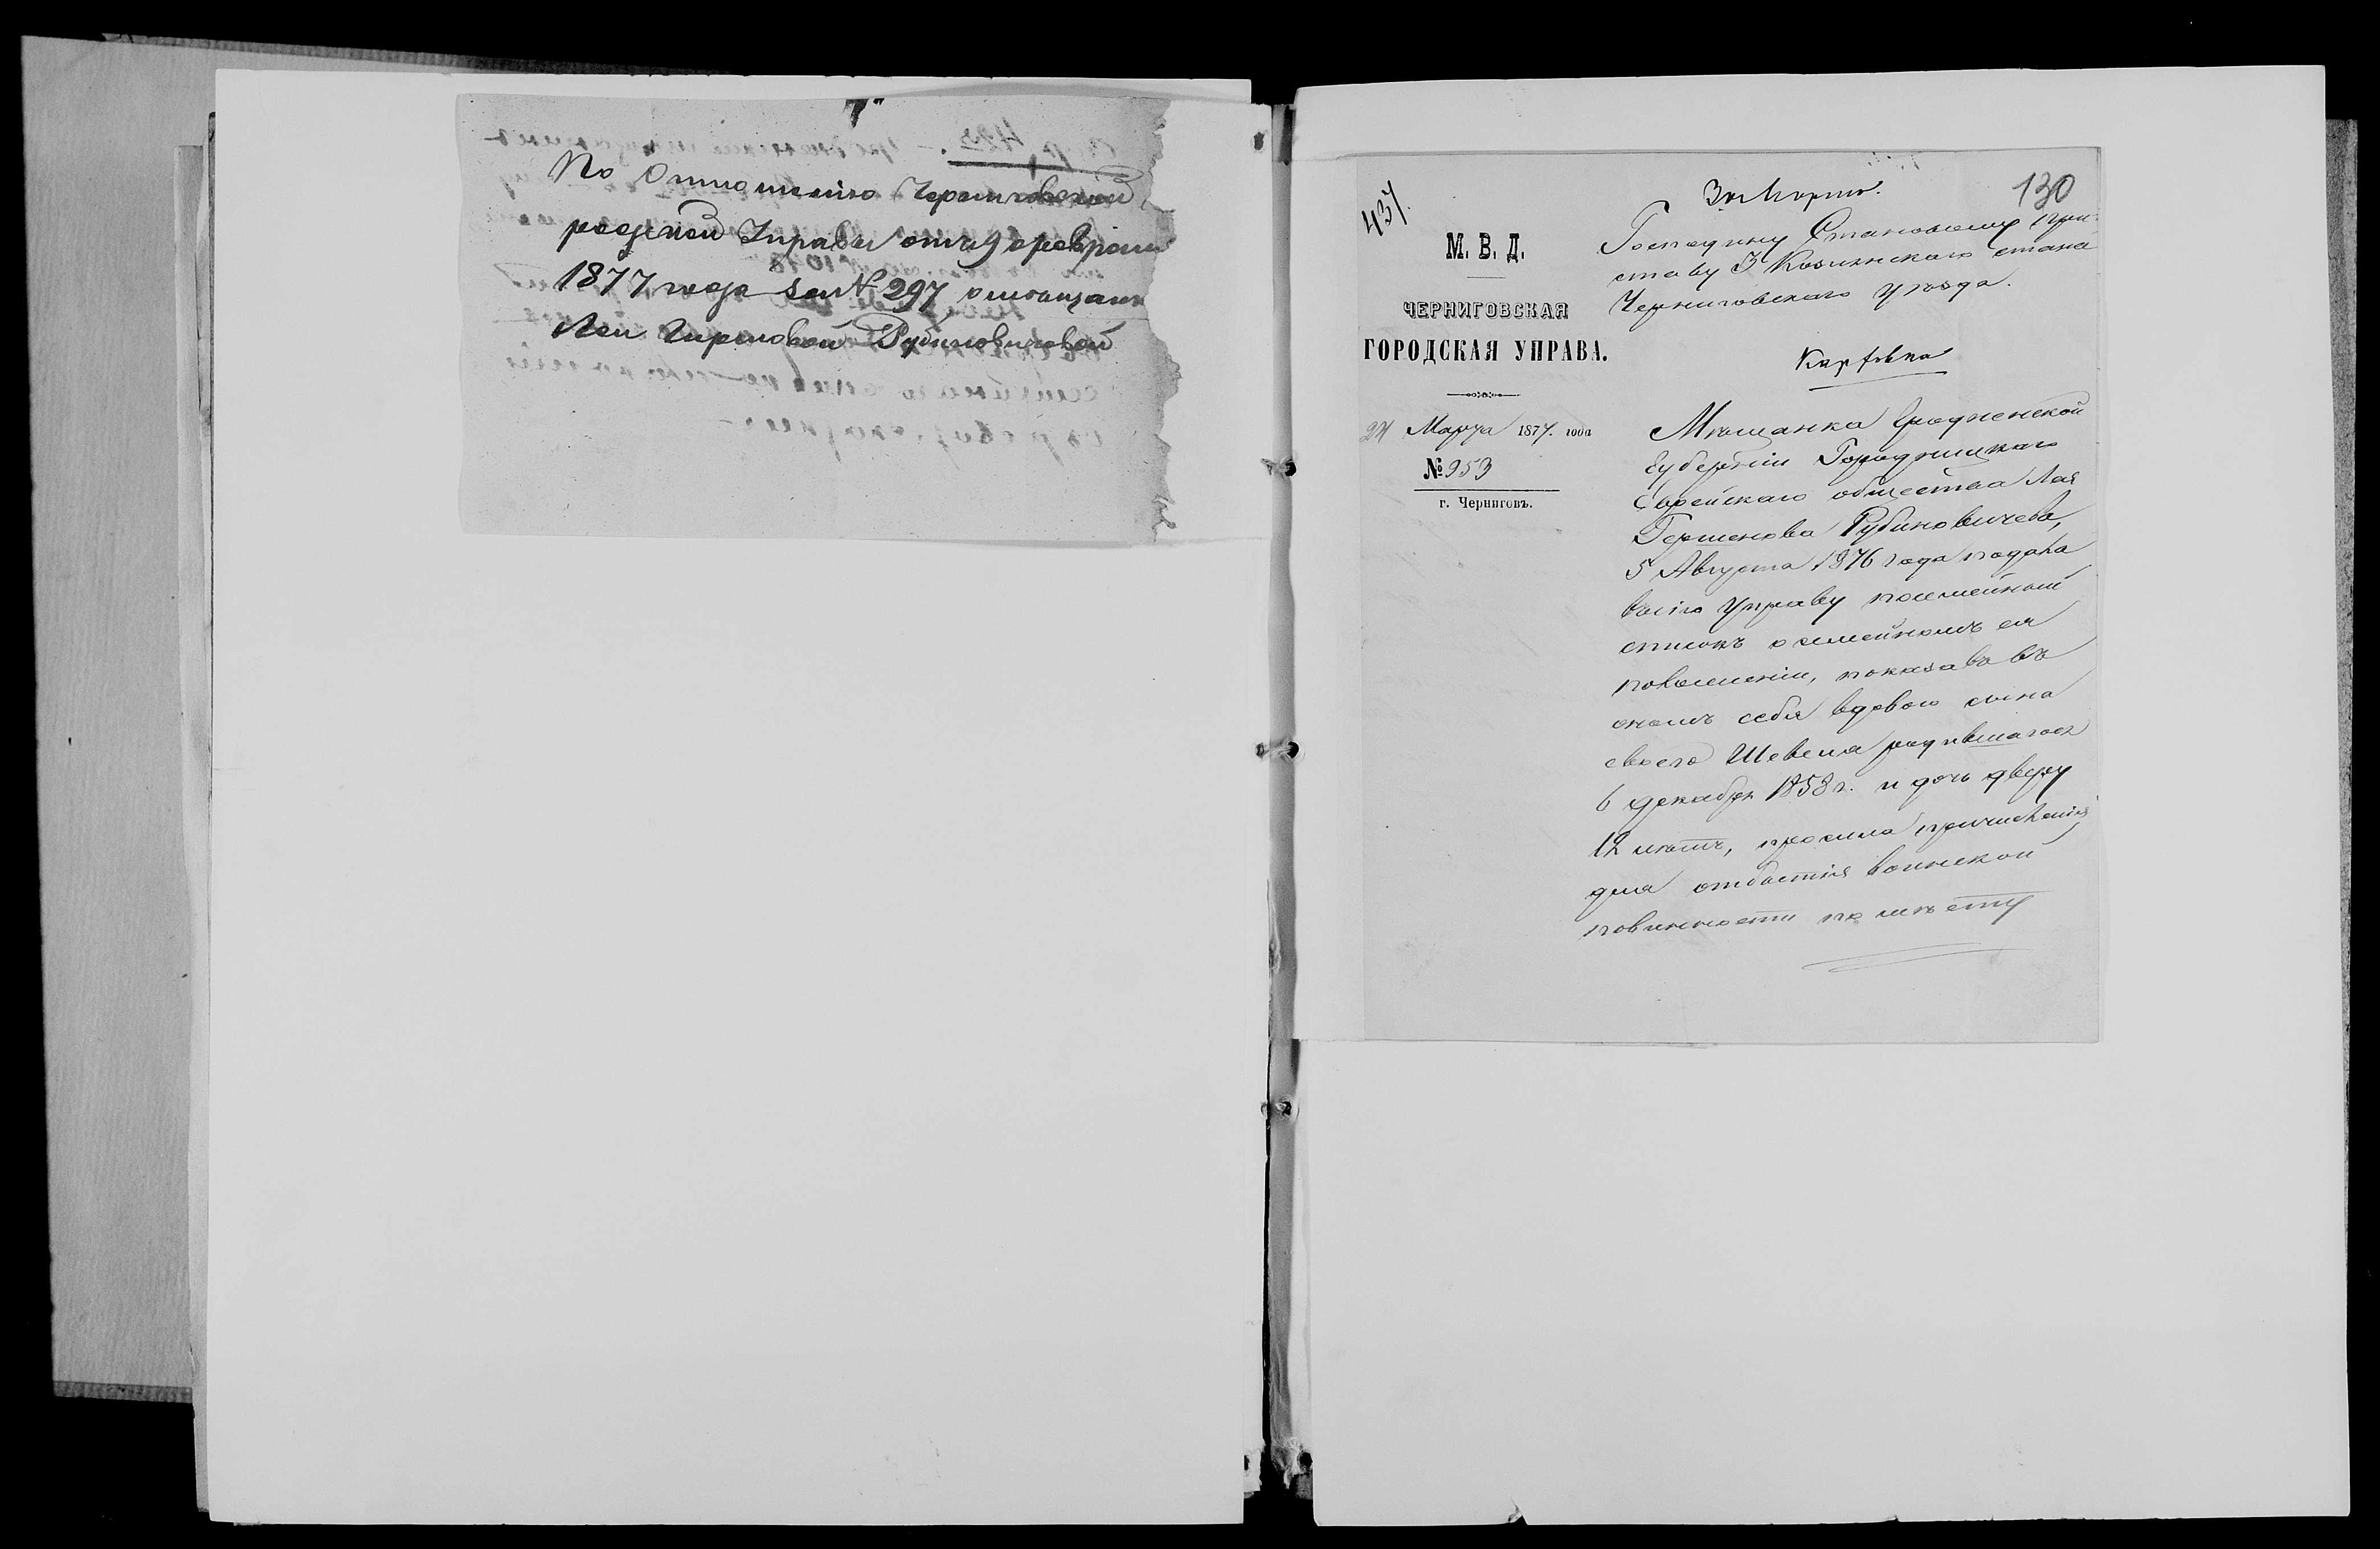 По Отношенію Черниговской
родской Управы отъ 9 февраля
1877 года за № 297 о мѣщанк
Леи Гиршовой Рубиновичовой
437.
130
М. В. Д.
ЧЕРНИГОВСКАЯ
ГОРОДСКАЯ УПРАВА.
24 Марта 1877. года
№ 953
г. Черниговъ.
Господину Становому при-
ставу 3 стана
Черниговскаго уѣзда.
Мѣщанка Гродненской
Губерніи
Еврейскаго общества Лея
Гершенова Рубиновичева,
5 Августа 1876 года подала
въ сію Управу посемейный
списокъ о семейномъ ея
положеніи, показавъ въ
ономъ себя вдовою сына
своего Шевеля родившагося
6 декабря 1858 г. и дочь дверу
12 лѣтъ, просила причисленія
для отбытія воинской
повинности по мѣсту